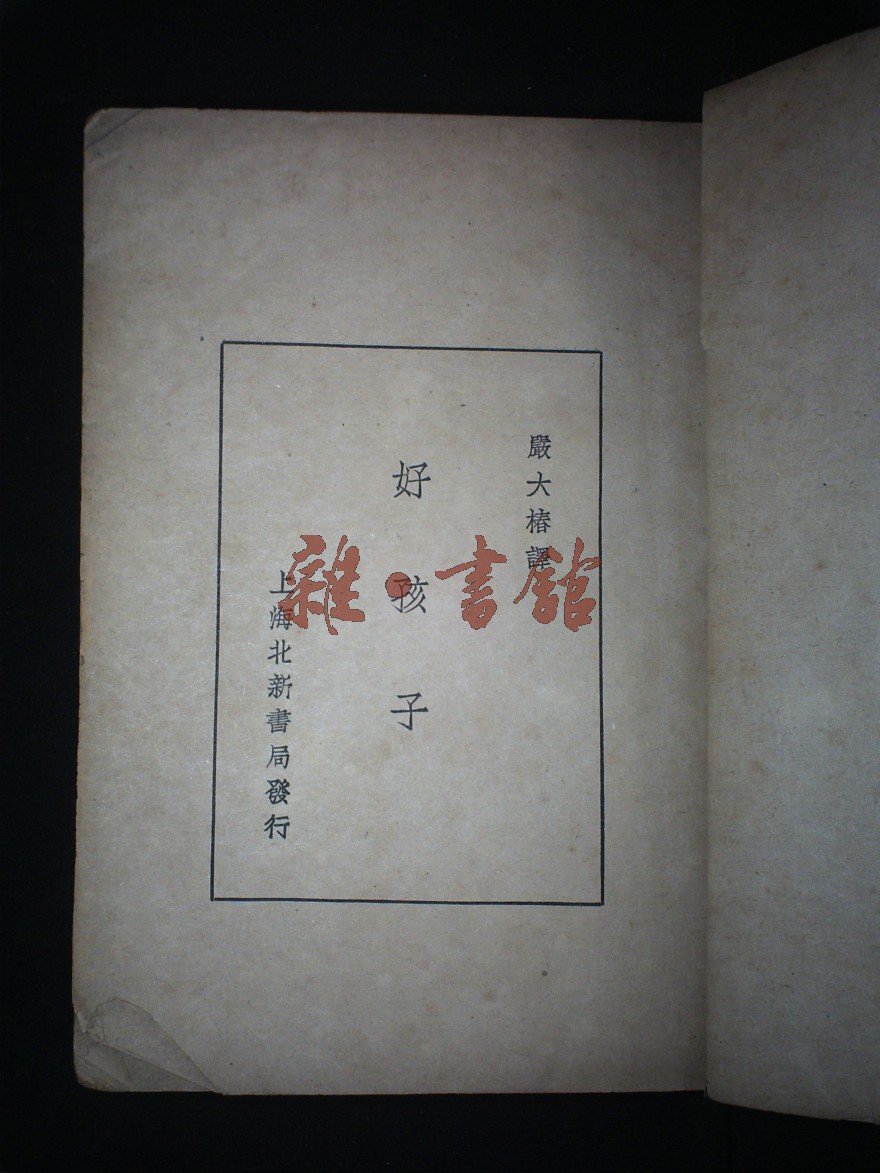 嚴大椿譯
好孩子
上海北新書局發行
雜·書館